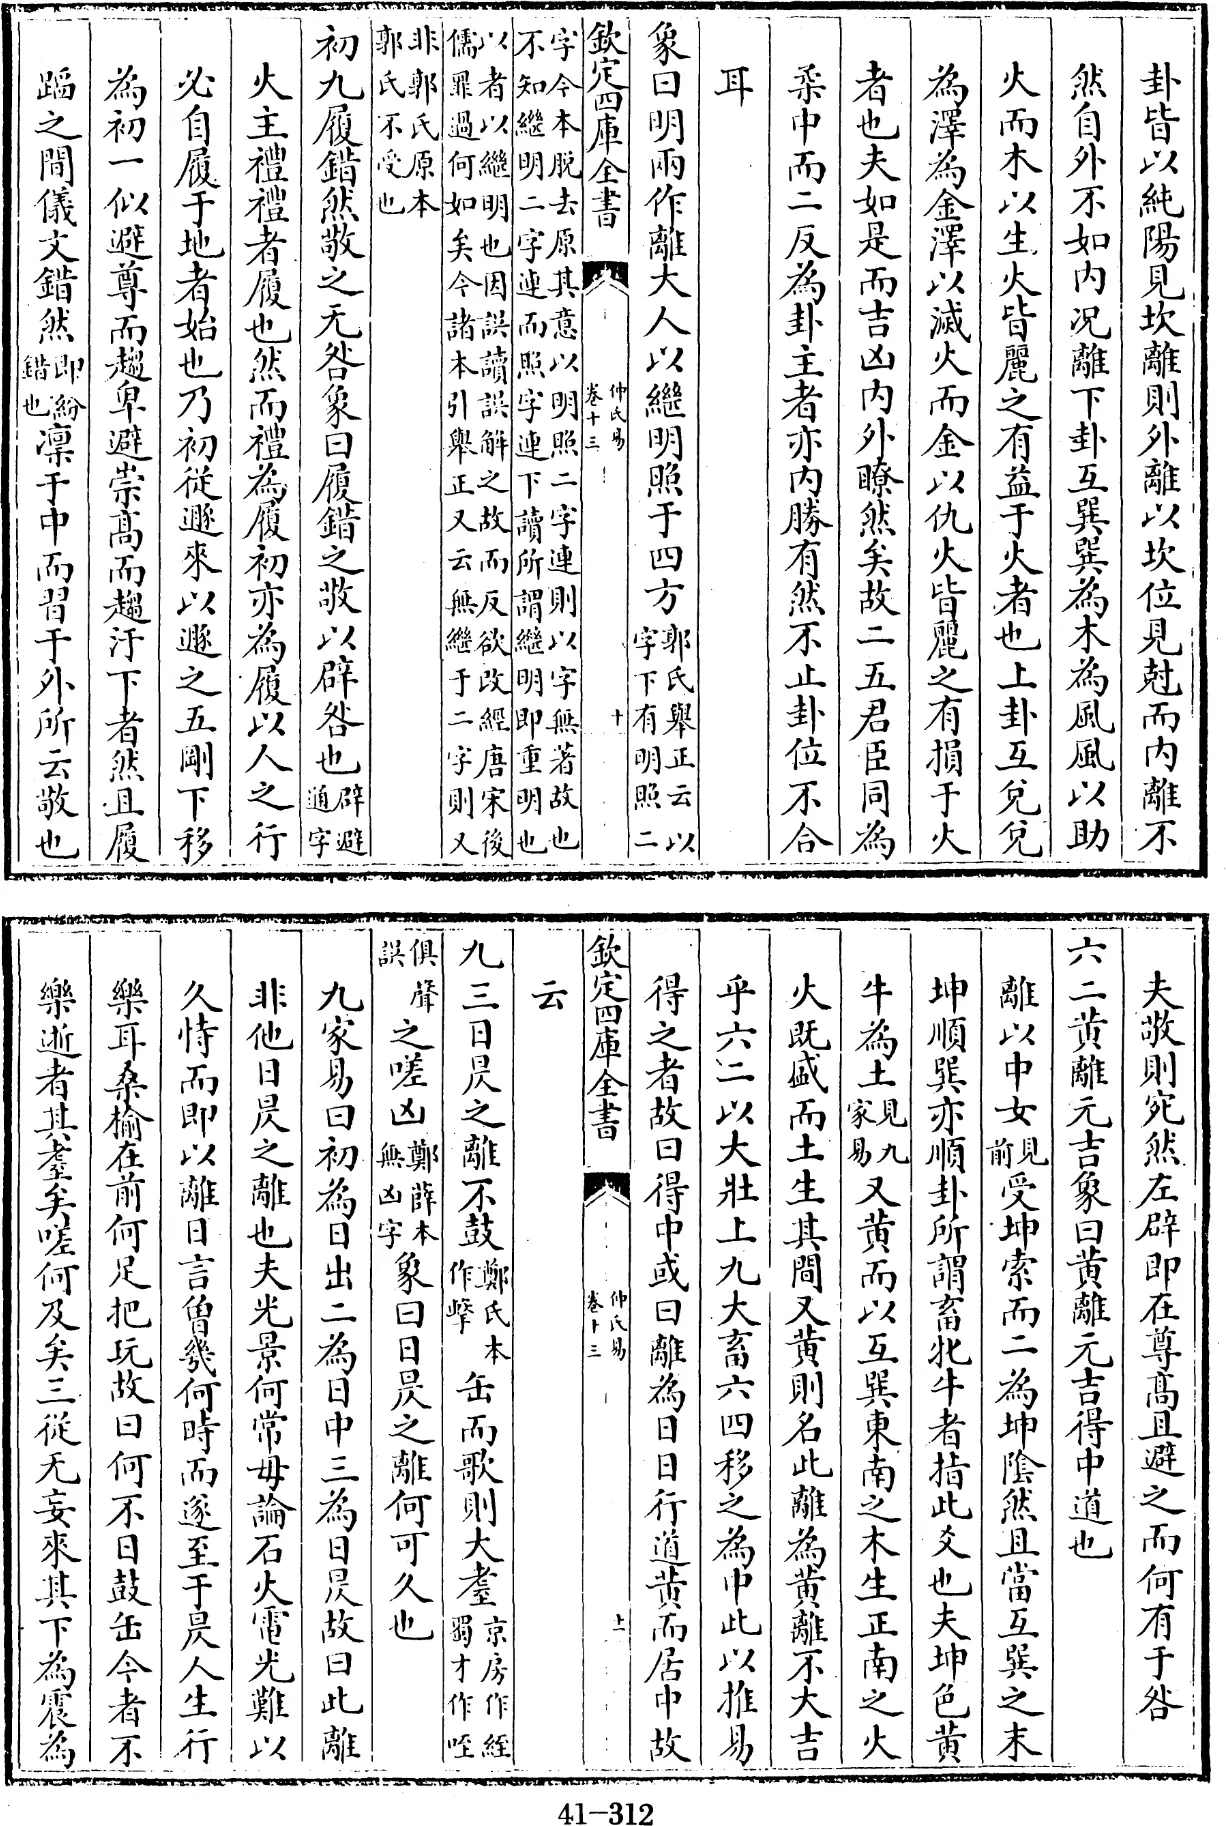 卦皆以純陽見坎離則外離以坎位見尅而内離不
然自外不如内况離下卦互巽巽為木為風風以助
火而木以生火皆麗之有益于火者也上卦互兌兌
為澤為金澤以滅火而金以仇火皆麗之有損于火
者也夫如是而吉凶内外瞭然矣故二五君臣同為
柔中而二反為卦主者亦内勝有然不止卦位不合
耳
象曰明兩作離大人以繼明照于四方郭氏舉正云以字下有明照二
欽定四庫全書
仲氏易
卷十三
十
字今本脱去原其意以明照二字連則以字無著故也
不知繼明二字連而照字連下讀所謂繼明即重明也
以者以繼明也因誤讀誤解之故而反欲改經唐宋後
儒罪過何如矣今諸本引舉正又云無繼于二字則又
非郭氏原本
郭氏不受也
初九履錯然敬之无咎象曰履錯之敬以辟咎也辟避通字
火主禮禮者履也然而禮為履初亦為履以人之行
必自履于地者始也乃初從遯來以遯之五剛下移
為初一似避尊而趨卑避崇高而趨汙下者然且履
蹈之間儀文錯然即紛錯也凛于中而習于外所云敬也
夫敬則宛然左辟即在尊高且避之而何有于咎
六二黄離元吉象曰黄離元吉得中道也
離以中女見前受坤索而二為坤陰然且當互巽之末
坤順巽亦順卦所謂畜牝牛者指此爻也夫坤色黄
牛為土見九家易又黄而以互巽東南之木生正南之火
火既盛而土生其間又黄則名此離為黄離不大吉
乎六二以大壯上九大畜六四移之為中此以推易
得之者故曰得中或曰離為日日行道黄而居中故
欽定四庫全書
仲氏易
卷十三
十一
云
九三日昃之離不鼓鄭氏本作擊缶而歌則大耋京房作絰蜀才作咥
俱聲誤之嗟凶鄭薛本無凶字象曰日昃之離何可久也
九家易曰初為日出二為日中三為日昃故曰此離
非他日昃之離也夫光景何常毋論石火電光難以
久恃而即以離日言曾幾何時而遂至于昃人生行
樂耳桑榆在前何足把玩故曰何不日鼓缶今者不
樂逝者其耋矣嗟何及矣三從无妄來其下為震為
41-312